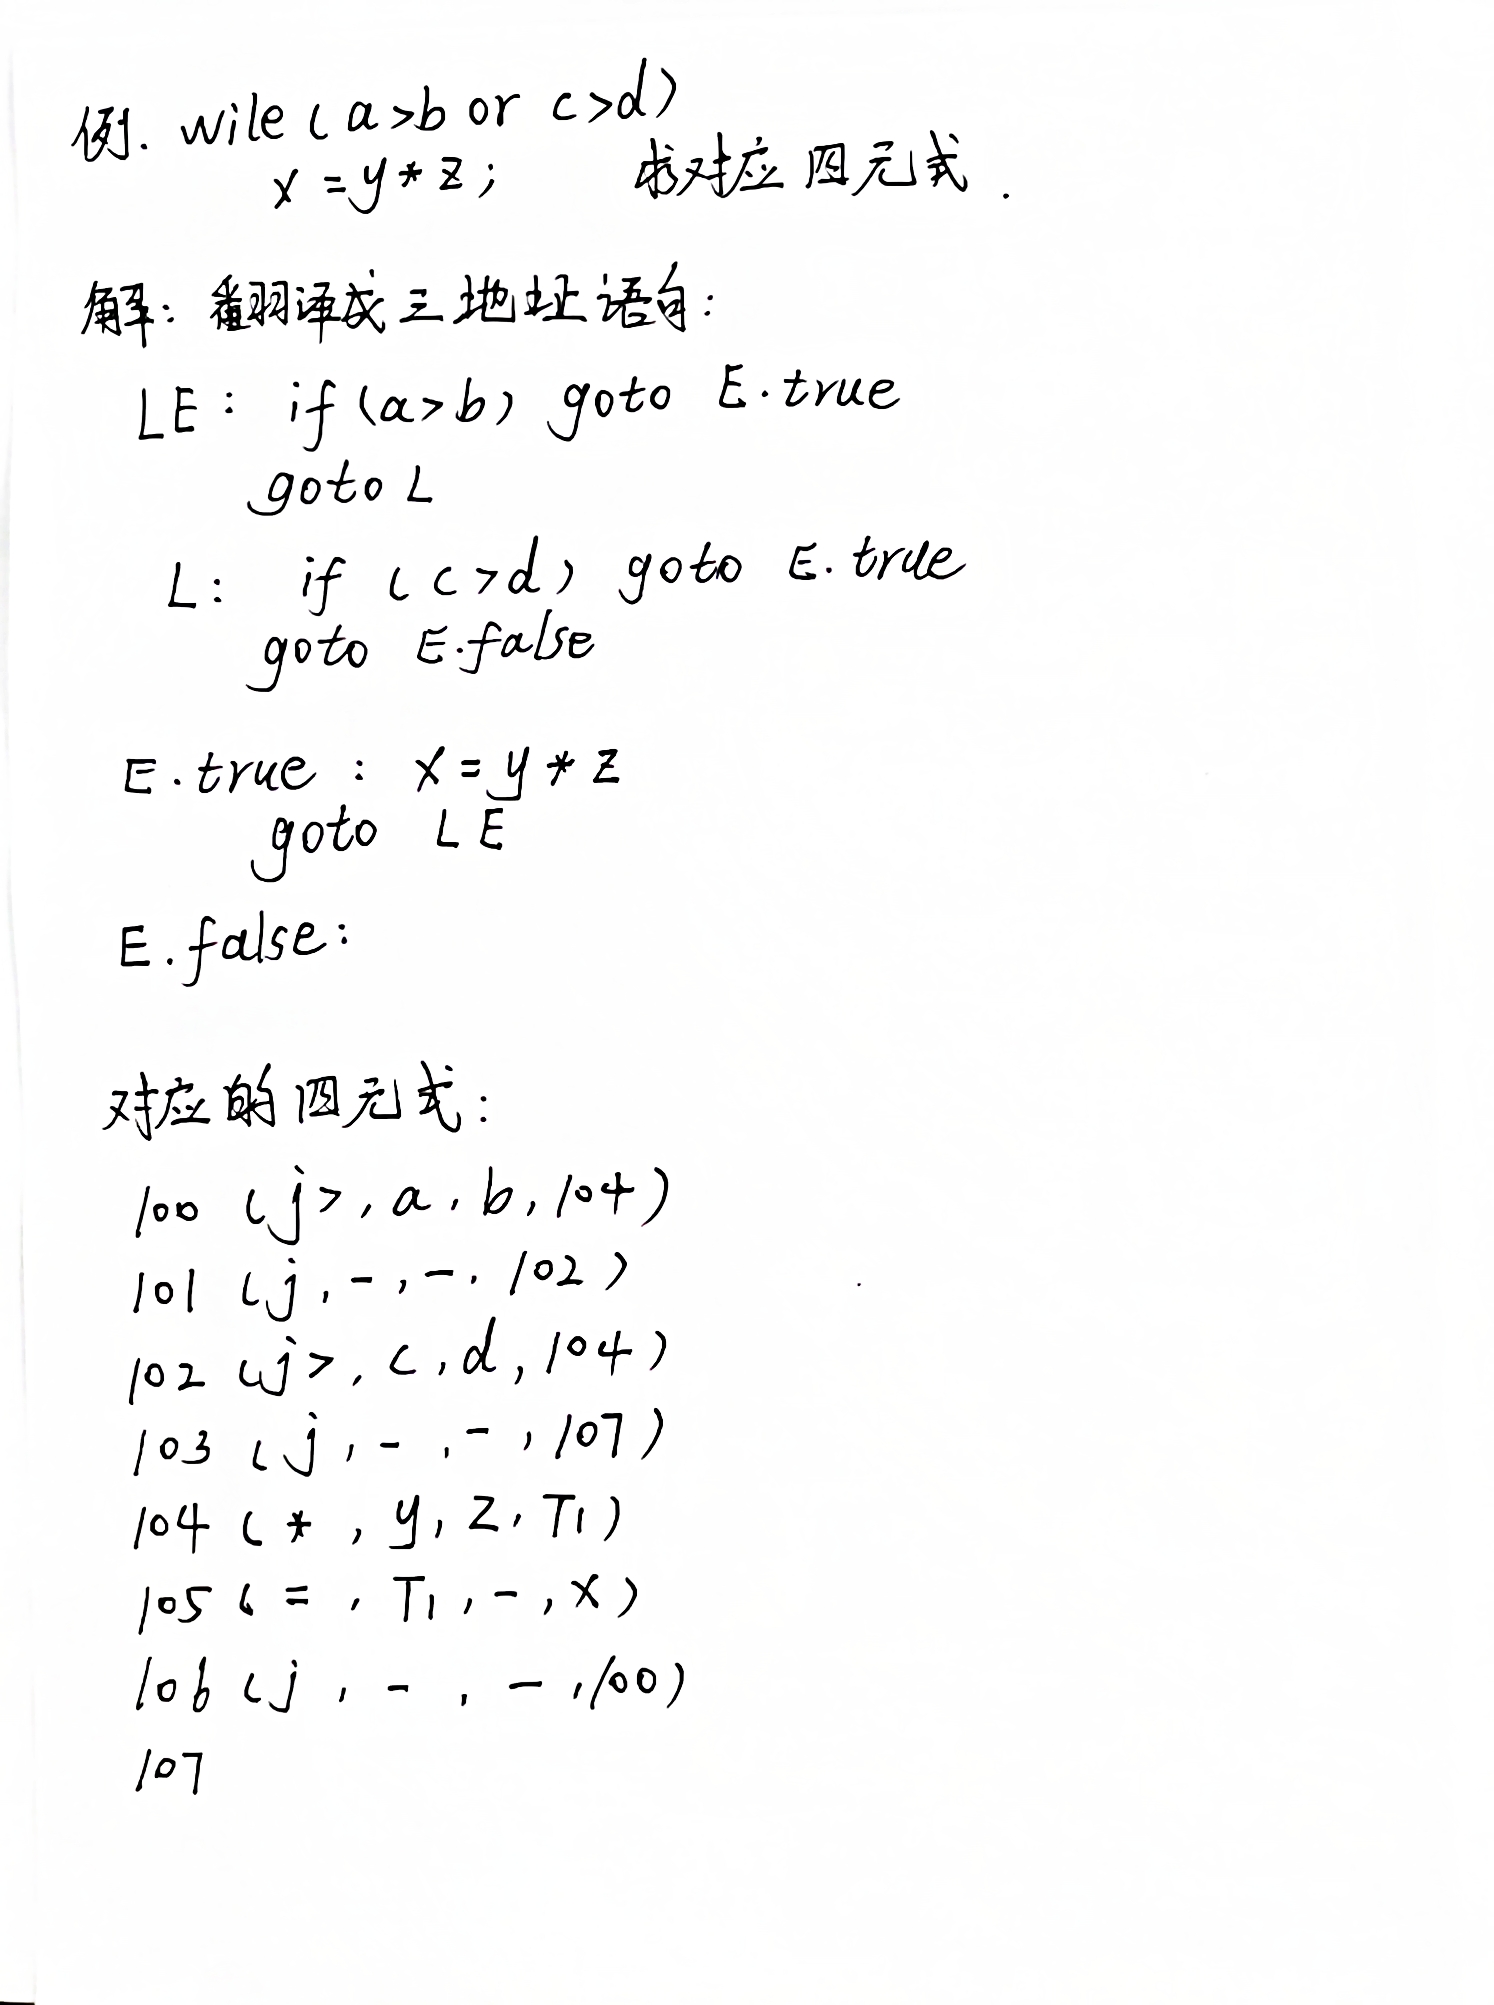 例. wile (a>b or c>d)
x = y * z;   求对应四元式.
解: 翻译成三地址语句:
LE: if (a>b) goto E.true
goto L
L: if (c>d) goto E.true
goto E.false
E.true : x = y * z
goto LE
E.false:
对应的四元式:
100 (j>, a, b, 104)
101 (j, -, -, 102)
102 (j>, c, d, 104)
103 (j, -, -, 107)
104 (*, y, z, T1)
105 (=, T1, -, x)
106 (j, -, -, 100)
107